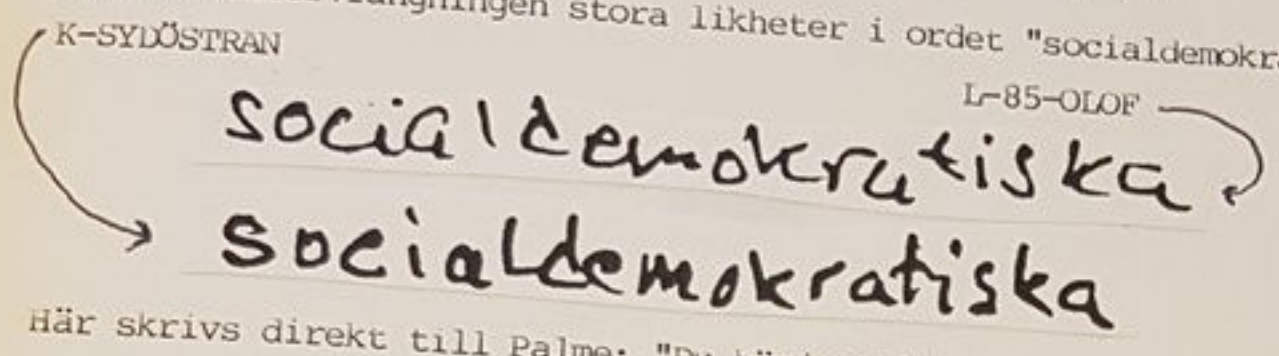 stora likheter i ordet "socialdemokra
K-SYDÖSTRAN
L-85-OLOF
socialdemokratiska
socialdemokratiska
Här skrivs direkt till Palme: